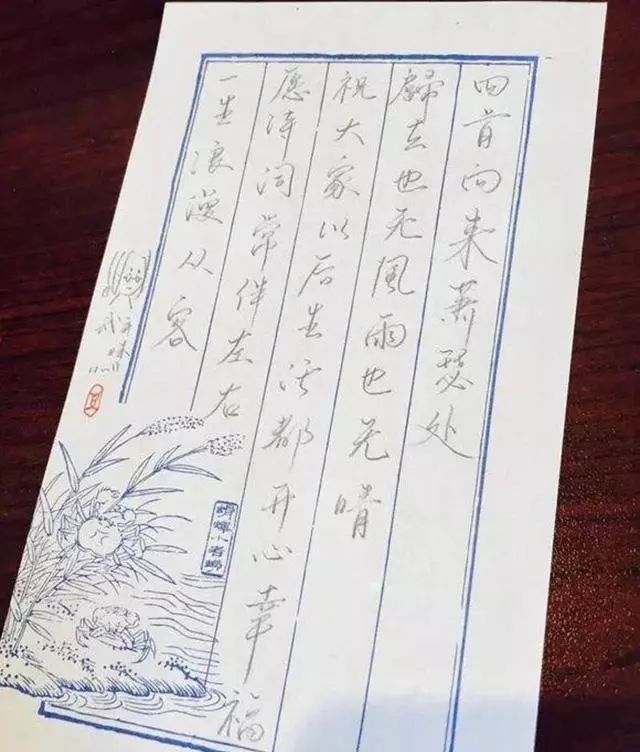 回首向来萧瑟处
歸去也无風雨也无晴
祝大家以后生活都开心幸福
愿诗词常伴左右
一生浪漫从容
武亦姝